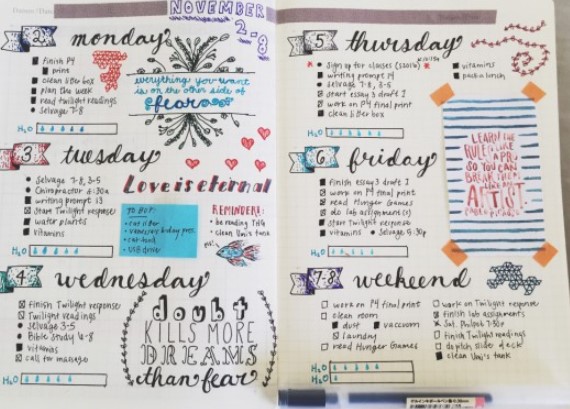 NOVEMBER
2-8
2 monday
finish P4
print
clean litter box
plan the week
read twilight readings
Selvage 7-8
H2O
everything you want
is on the other side of
fear
3 tuesday
Selvage 7-8, 3-5
Chiropractor 6:30a
writing prompt 13
Start Twilight response
water plants
vitamins
H2O
Love is eternal
TO BUY:
cat litter
cat food
USB drive
REMINDERS:
be reading
clean Umi's tank
4 wednesday
Finish Twilight response
Twilight readings
Selvage 3-5
Bible Study 6-8
vitamins
call for massage
H2O
doubt
KILLS MORE
DREAMS
than fear
5 thursday
Sign up for classes
writing prompt 14
Selvage 7-8, 3-5
start essay 3 draft 1
work on P4 final print
clean litter box
vitamins
pack lunch
H2O
LEARN THE
RULES LIKE
A PRO,
SO YOU CAN
BREAK THEM
LIKE AN
ARTIST.
PABLO PICASSO
6 friday
Finish essay 3 draft 1
work on P4 final print
read Hunger Games
do lab assignment(s)
Start Twilight response
vitamins
Selvage 5:30p
H2O
7-8 weekend
work on P4 final print
clean room
dust
vaccuum
laundry
read Hunger Games
work on Twilight response
Finish lab assignments
Sat. Potluck 7:30p
Finish Twilight readings
do pitch slide deck
clean Umi's tank
H2O
H2O